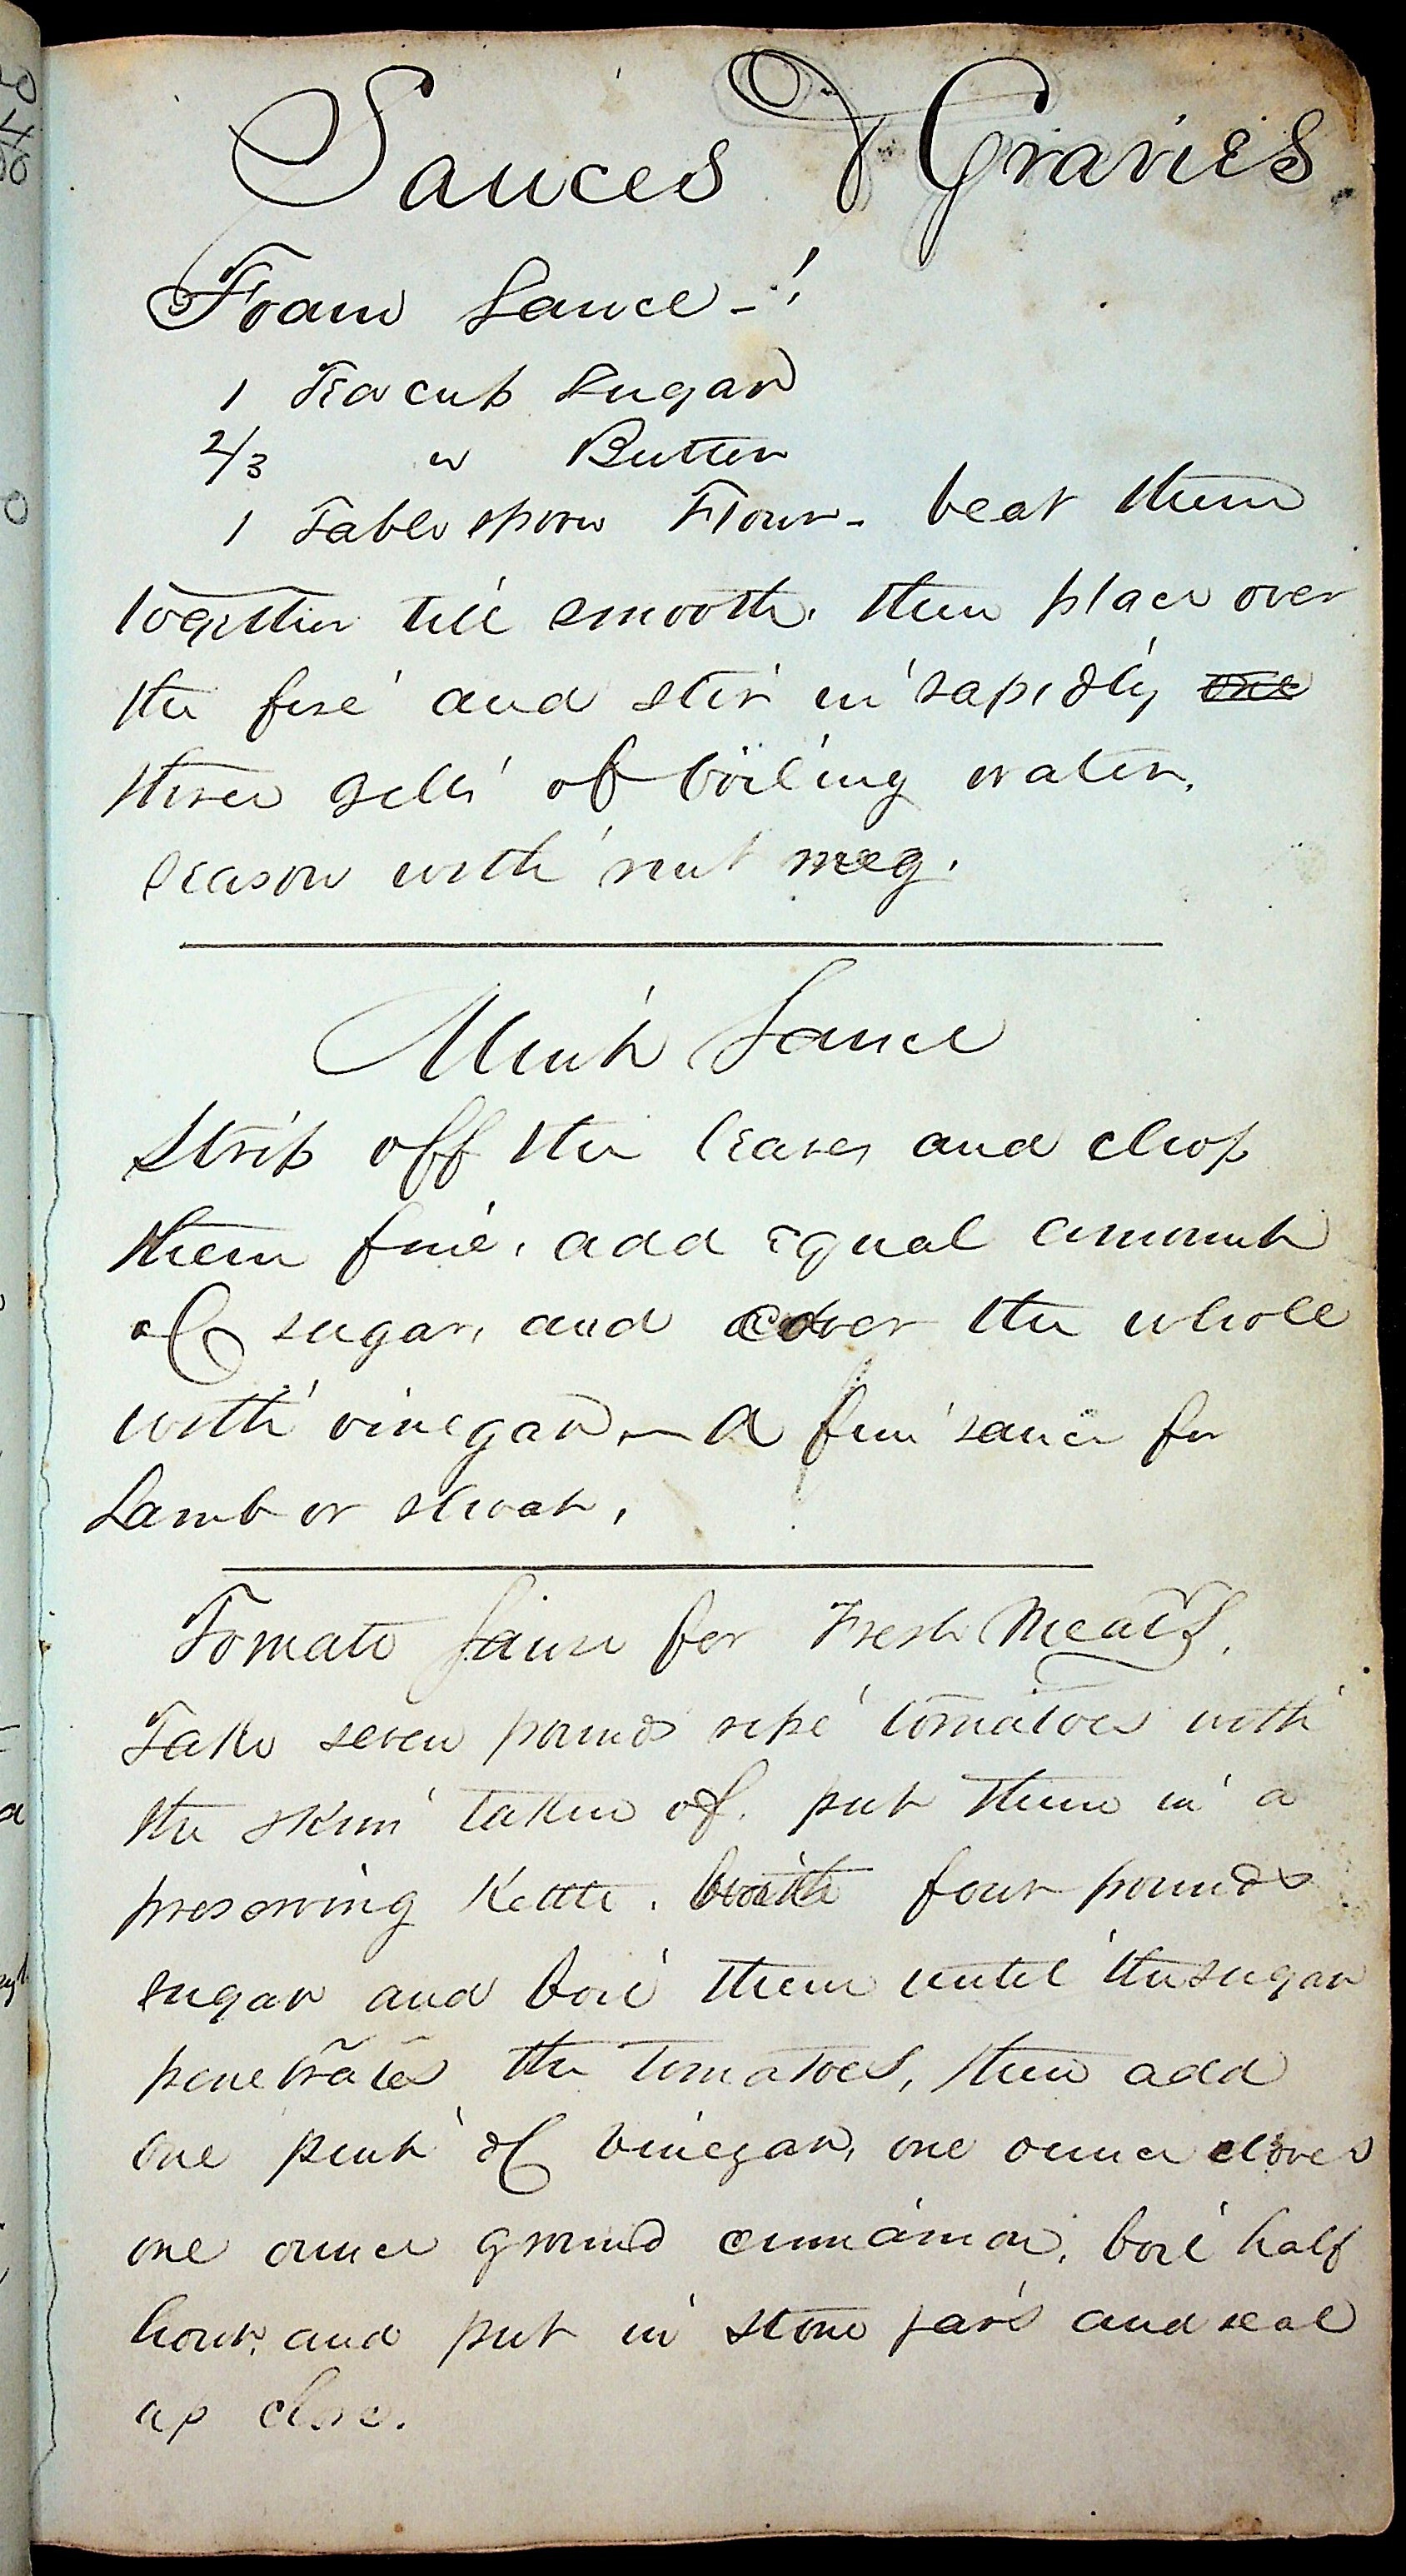 Sauces & Gravies
Foam Sauce -!
1 Tea cup Sugar
2/3 " Butter
1 Table spoon Flour - beat them
together till smooth, then place over
the fire and stir in rapidly one
three gills of boiling water.
season with nut meg.
Mint Sauce
Strip off the leaves and chop
them fine, add equal amount
of sugar, and cover the whole
with vinegar - A fine sauce for
Lamb or shoat,
Tomato Sauce for Fresh Meats.
Take seven pounds ripe tomatoes with
the skin taken of. put them in a
preserving Kettle. with four pounds
sugar and boil them until the sugar
penetrates the tomatoes, then add
one pint of vinegar, one ounce cloves
one ounce ground cinnamon, boil half
hour, and put in stone jars and seal
up close.